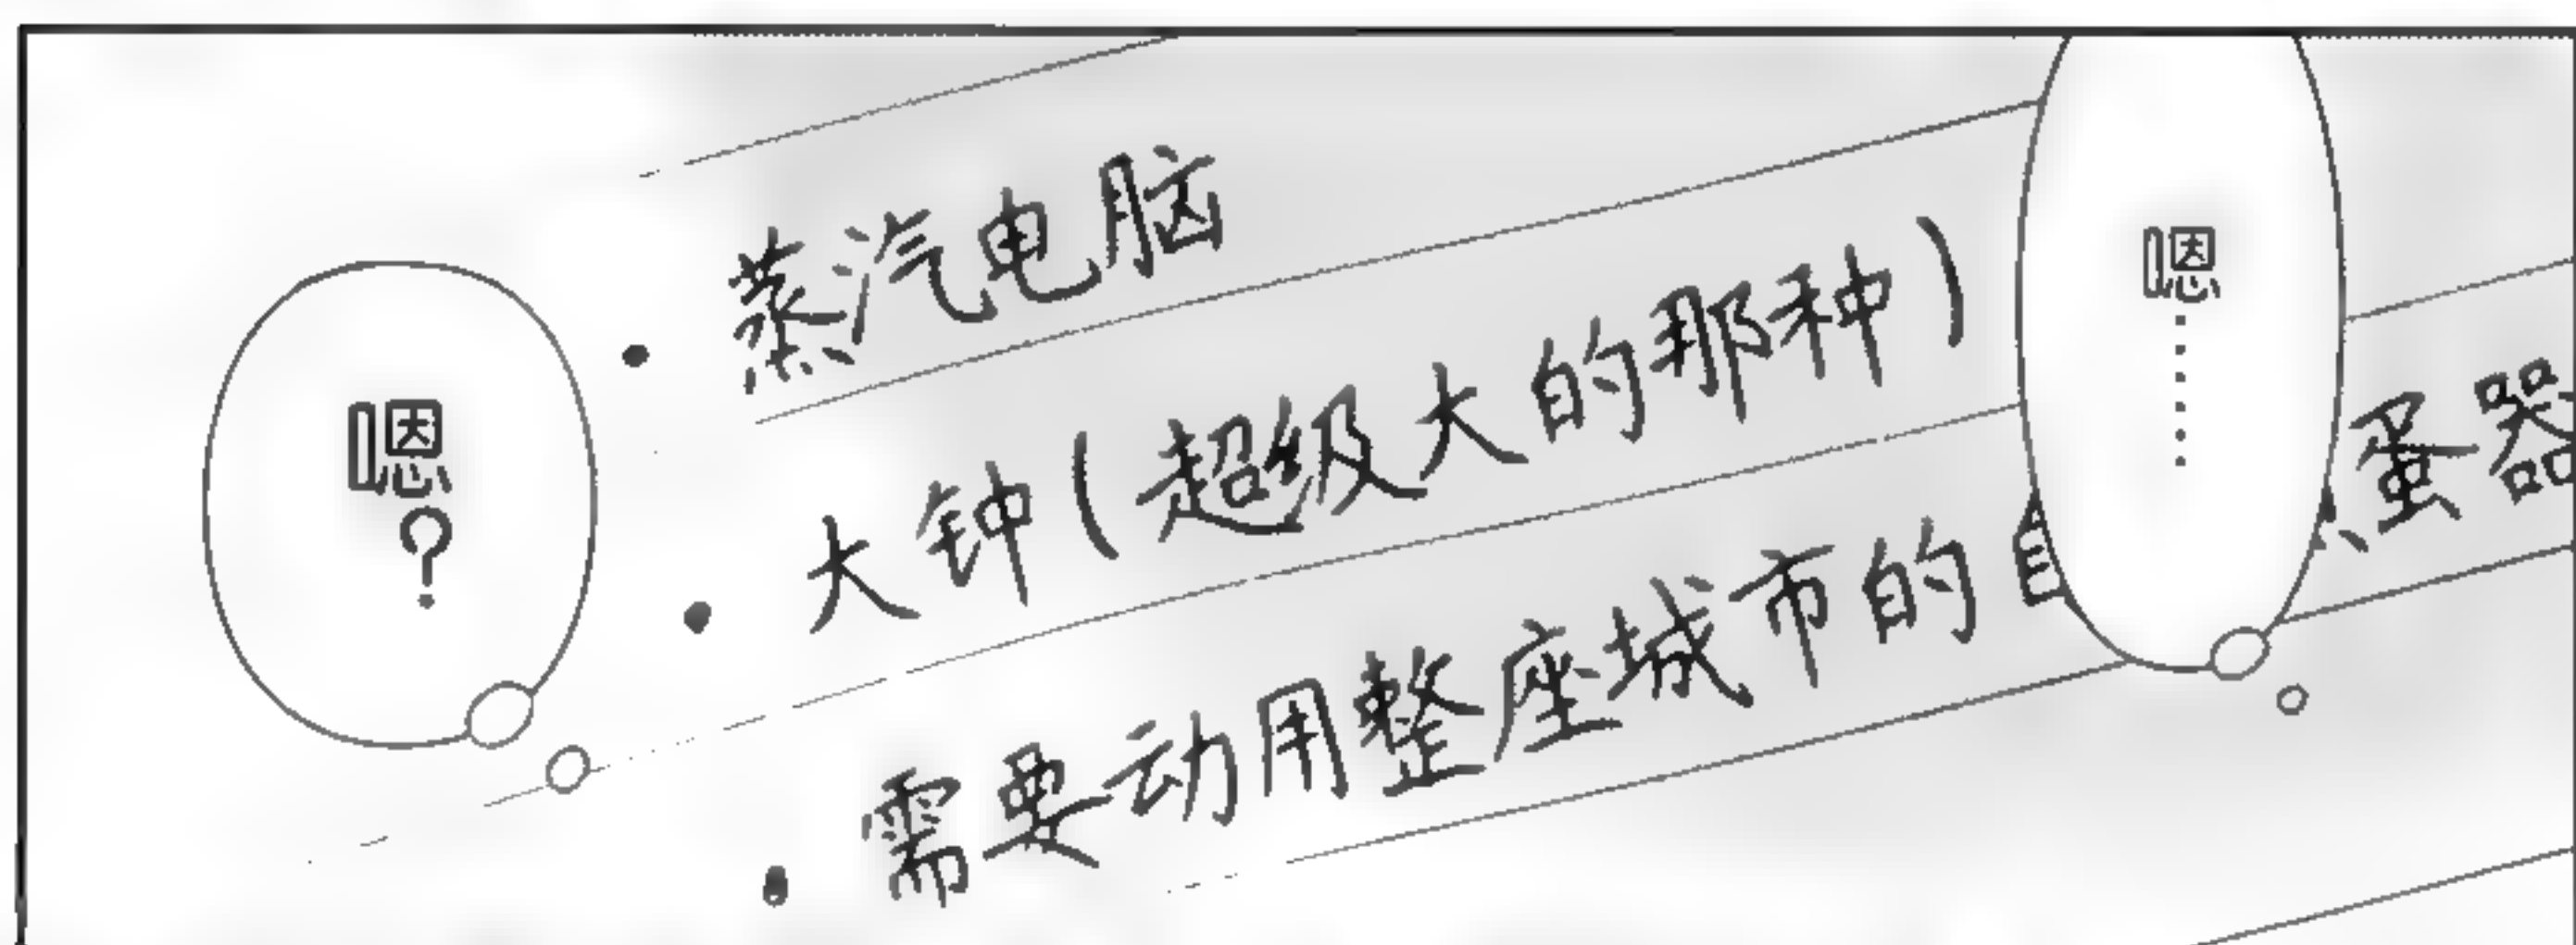 嗯?
・蒸汽电脑
・大钟(超级大的那种)
・需要动用整座城市的自 蛋器
嗯……